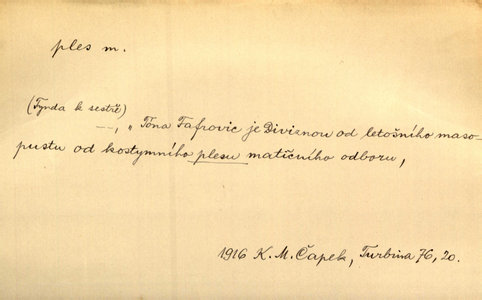 ples m.
(Tynda k sestře)
—, „ Tóna Fafrovic je Diviznou od letošního maso-
pustu od kostymního plesu matičního odboru,
1916 K. M. Čapek, Turbina 76, 20.